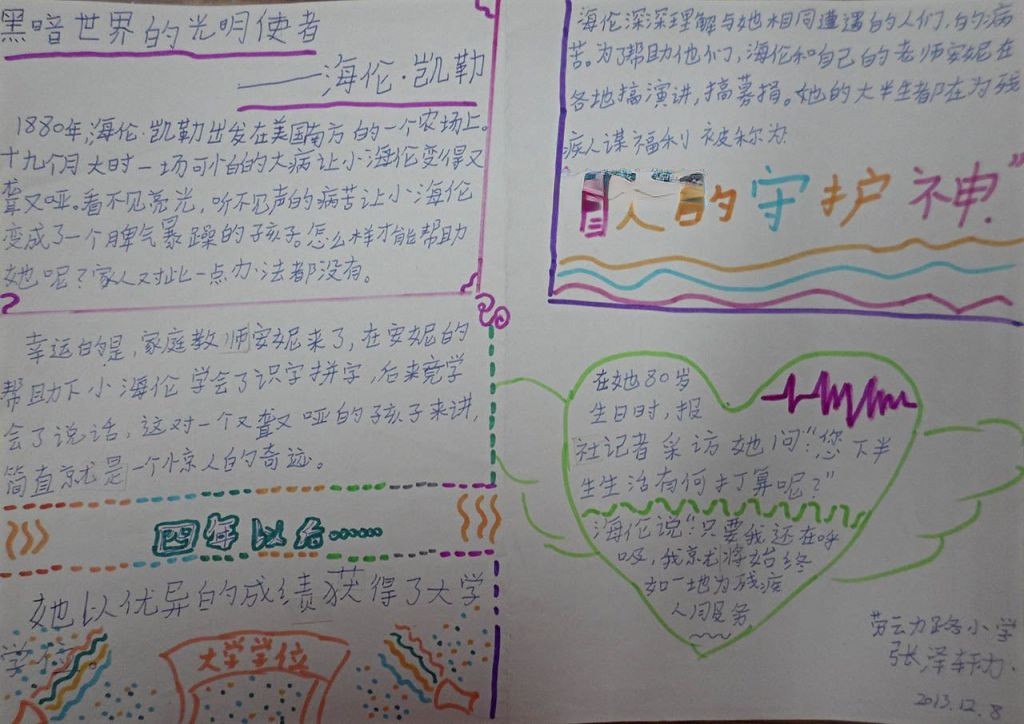 黑暗世界的光明使者
——海伦·凯勒
1880年,海伦·凯勒出发在美国南方的一个农场上。
十九个月大时一场可怕的大病让小海伦变得又
聋又哑。看不见亮光,听不见声的病苦让小海伦
变成了一个脾气暴躁的子孩子。怎么样才能帮助
她呢?家人对此一点办法都没有。
幸运的是,家庭教师安妮来了,在安妮的
帮助下小海伦学会了识字拼字,后来竟学
会了说话,这对一个又聋又哑的孩子来讲,
简直就是一个惊人的奇迹。
四年以后……
她以优异的成绩获得了大学
学位。
大学学位
海伦深深理解与她相同遭遇的人们,的病
苦。为了帮助他们,海伦和自己的老师安妮在
各地搞演讲,搞募捐。她的大半生都在为残
疾人谋福利被称为
人的守护神”
在她80岁
生日时,报
社记者采访她问“您下半
生生活有何打算呢?”
海伦说“只要我还在呼
吸,我就将始终
如一地为残疾
人间服务
劳动路小学
张泽轩
2013.12.8